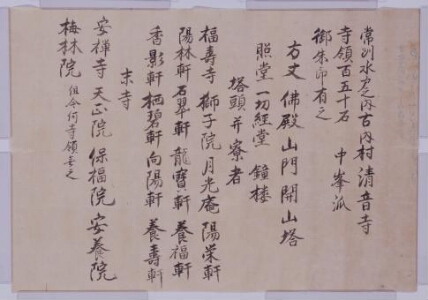 常州水戸之内古内村清音寺
寺領百五十石　中峯派
御朱印有之
方丈　佛殿　山門　開山塔
照堂　一切経堂　鐘楼
塔頭并寮者
福壽寺　獅子院　月光庵　陽栄軒
陽林軒　石翠軒　龍寶軒　養福軒
香影軒　栖碧軒　向陽軒　養壽軒
末寺
安禅寺　天正院　保福院　安養院
梅林院　但令何寺領無之